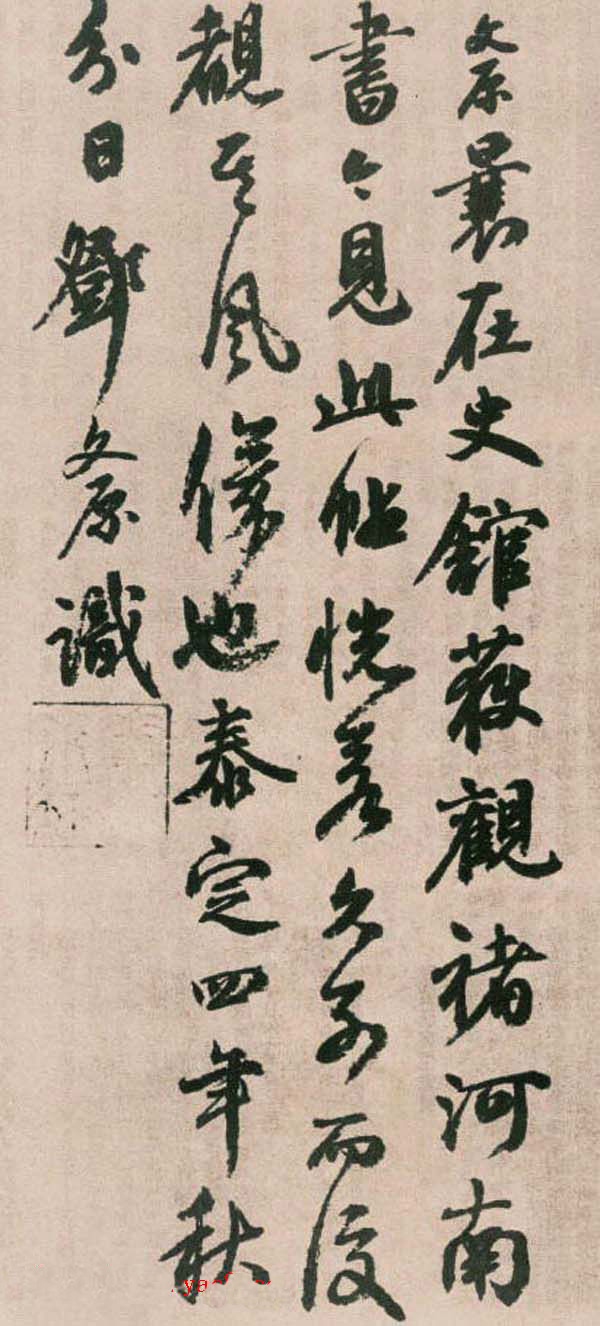 文原曩在史館獲觀褚河南
書今見此帖恍若久别而復
覩其風儀也泰定四年秋
分日鄧文原識